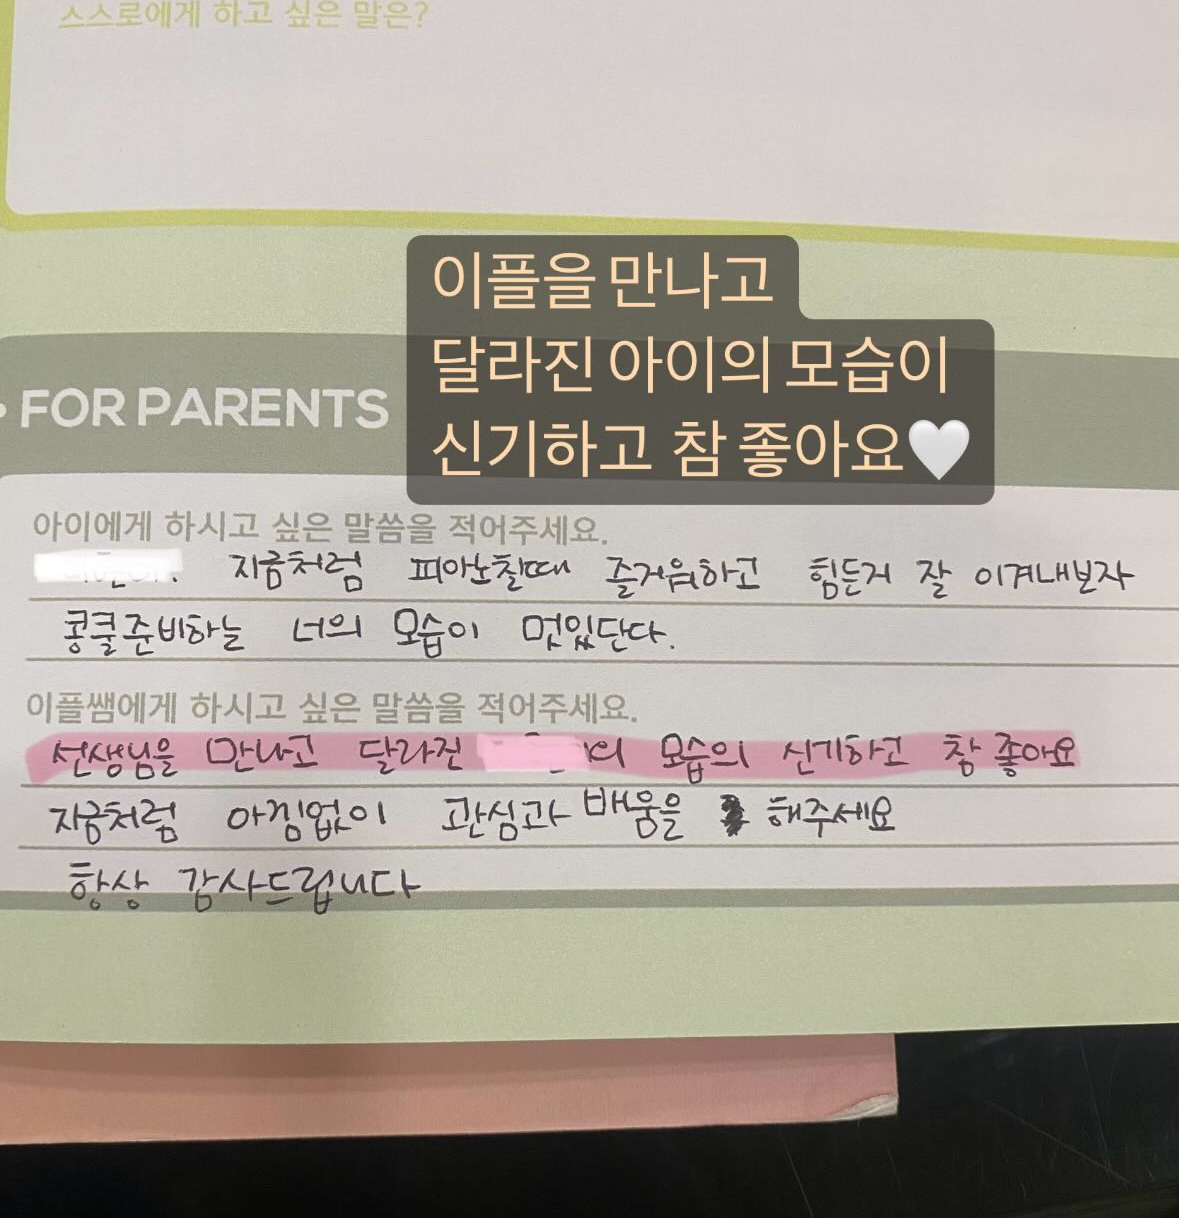 스스로에게 하고 싶은 말은?
이플을 만나고
달라진 아이의 모습이
신기하고 참 좋아요🤍
FOR PARENTS
아이에게 하시고 싶은 말씀을 적어주세요.
지금처럼 피아노칠때 즐거워하고 힘든거 잘 이겨내보자
콩쿨준비하는 너의 모습이 멋있단다.
이플쌤에게 하시고 싶은 말씀을 적어주세요.
선생님을 만나고 달라진 의 모습의 신기하고 참 좋아요
지금처럼 아낌없이 관심과 배움을 해주세요
항상 감사드립니다